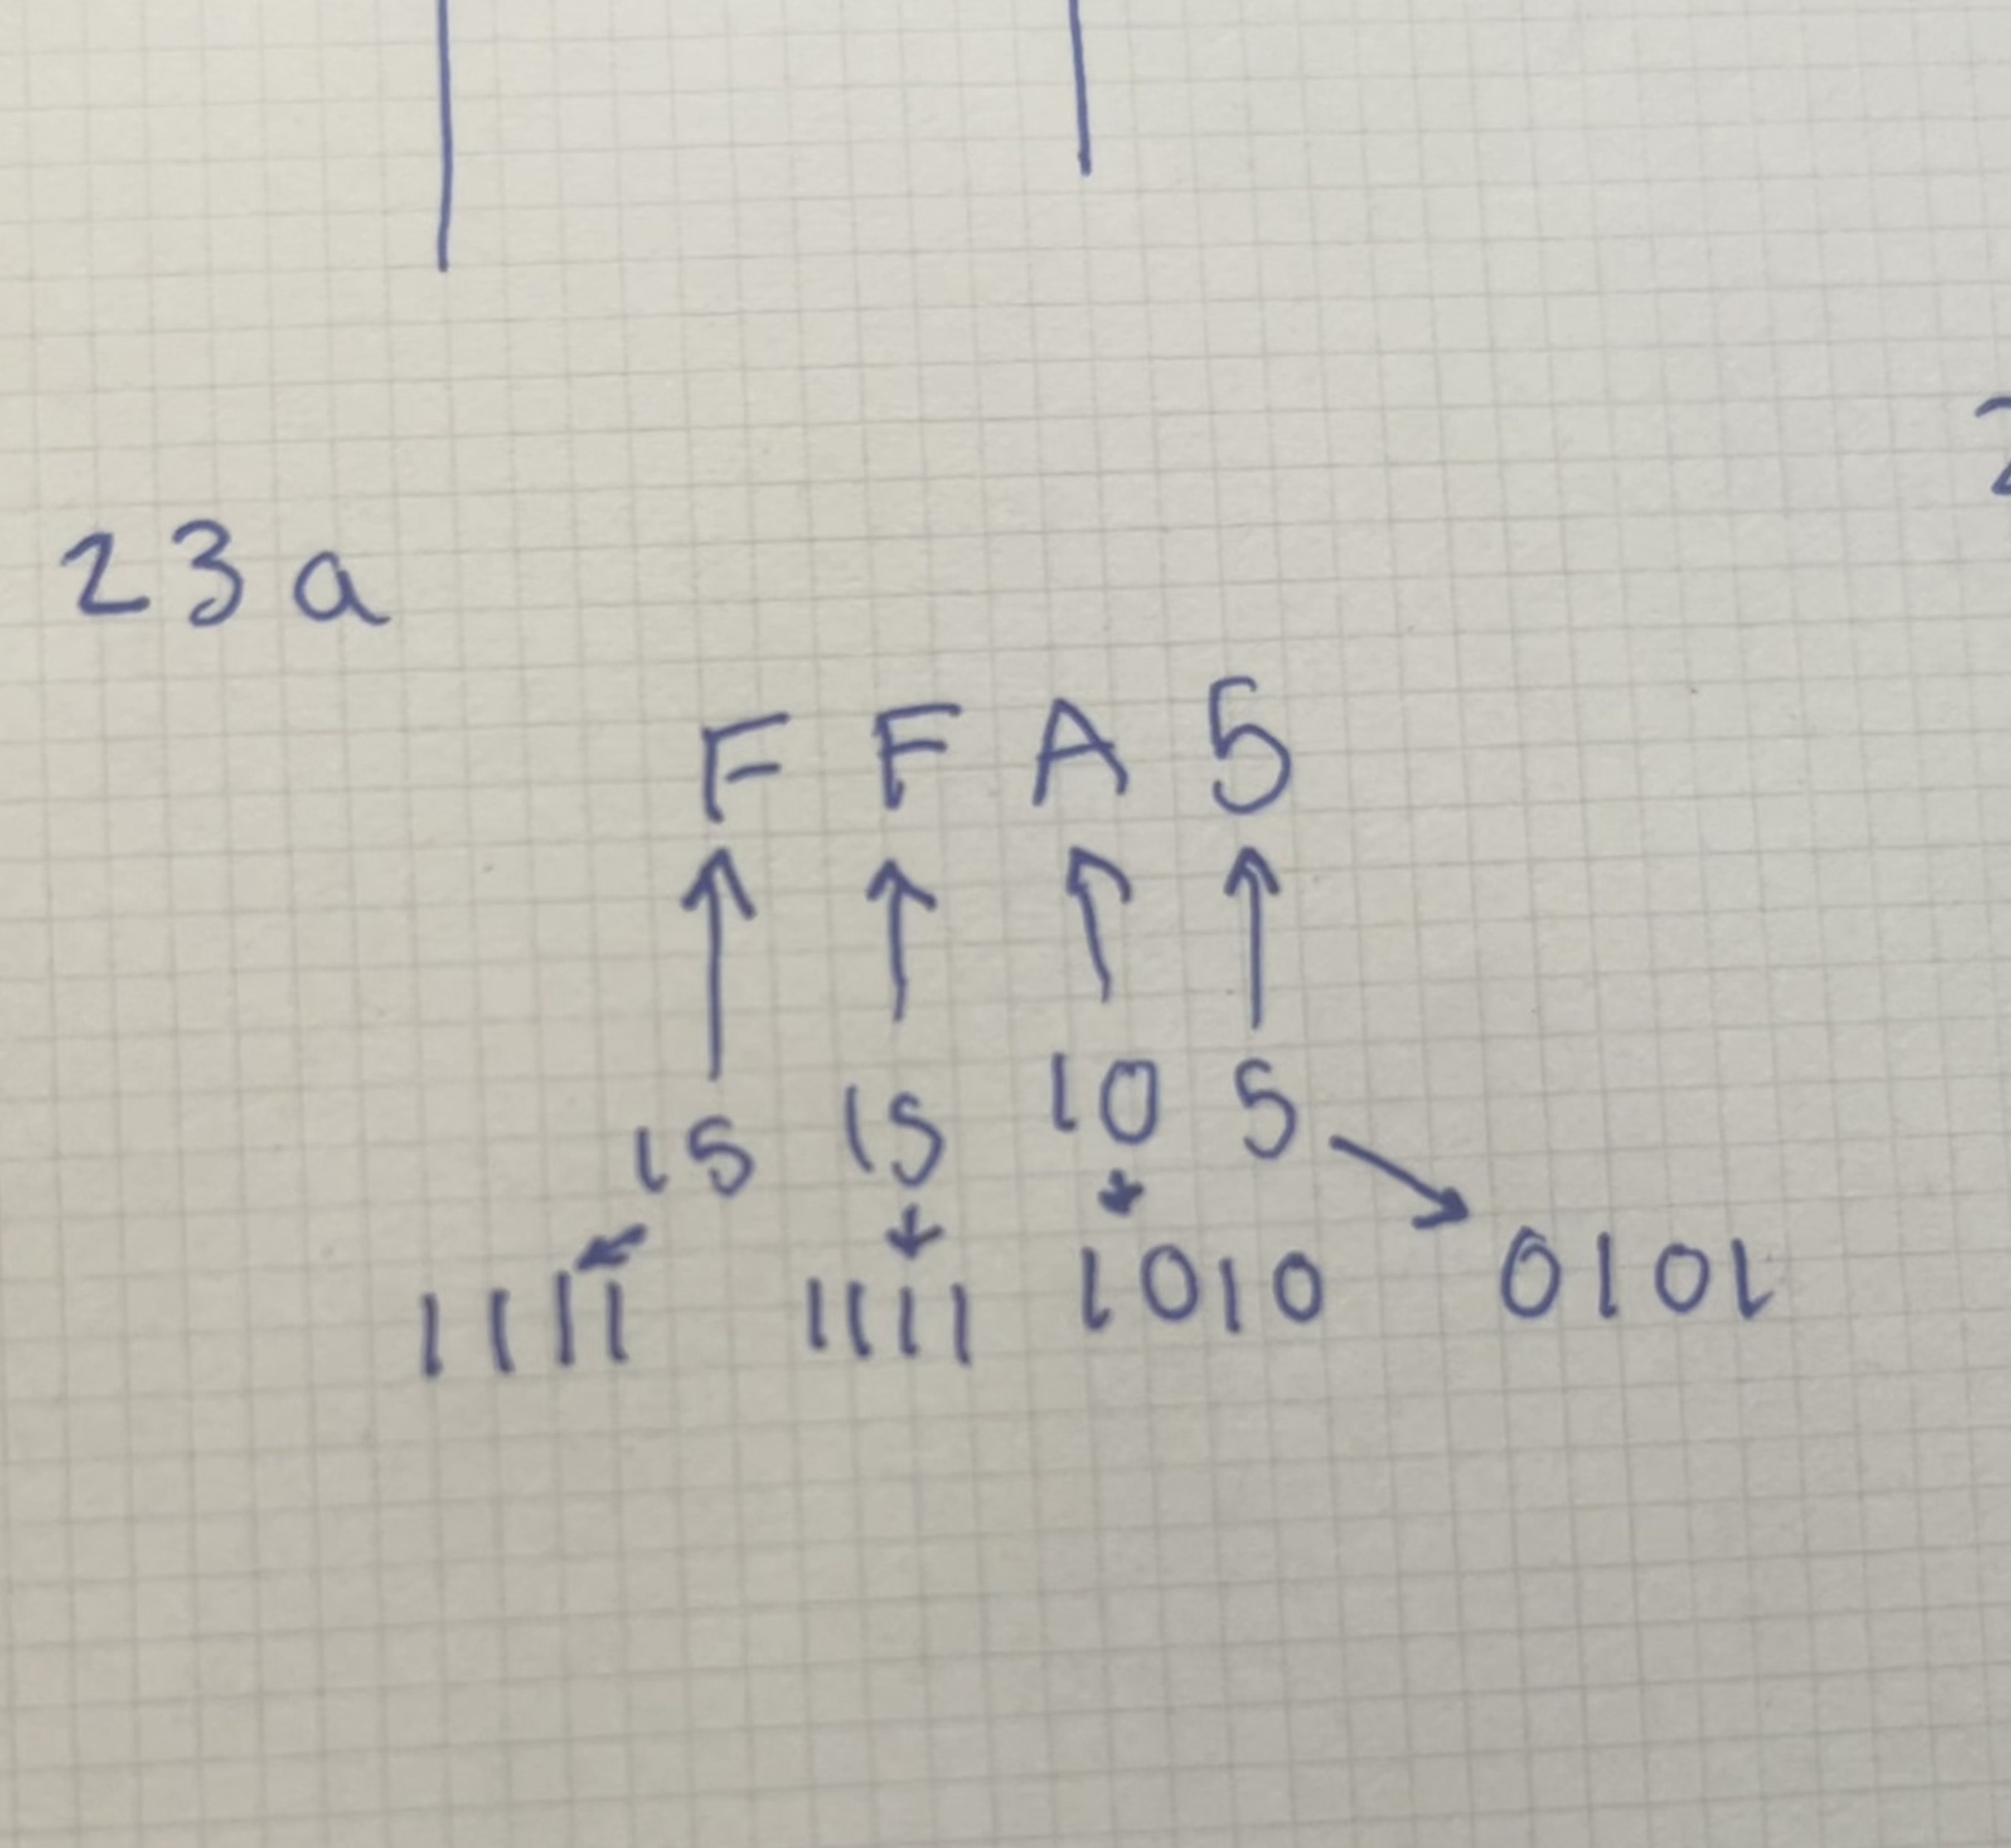 23a
F F A 5
15 15 10 5
1111 1111 1010 0101